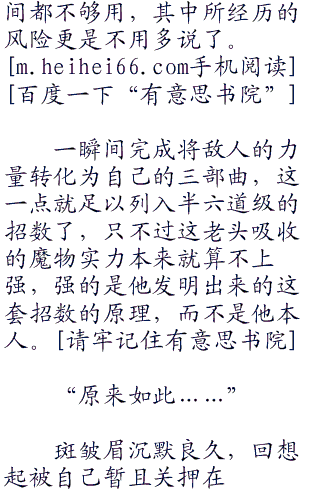 间都不够用，其中所经历的
风险更是不用多说了。
[m.heihei66.com手机阅读]
[百度一下“有意思书院”]
一瞬间完成将敌人的力
量转化为自己的三部曲，这
一点就足以列入半六道级的
招数了，只不过这老头吸收
的魔物实力本来就算不上
强，强的是他发明出来的这
套招数的原理，而不是他本
人。[请牢记住有意思书院]
“原来如此……”
斑皱眉沉默良久，回想
起被自己暂且关押在